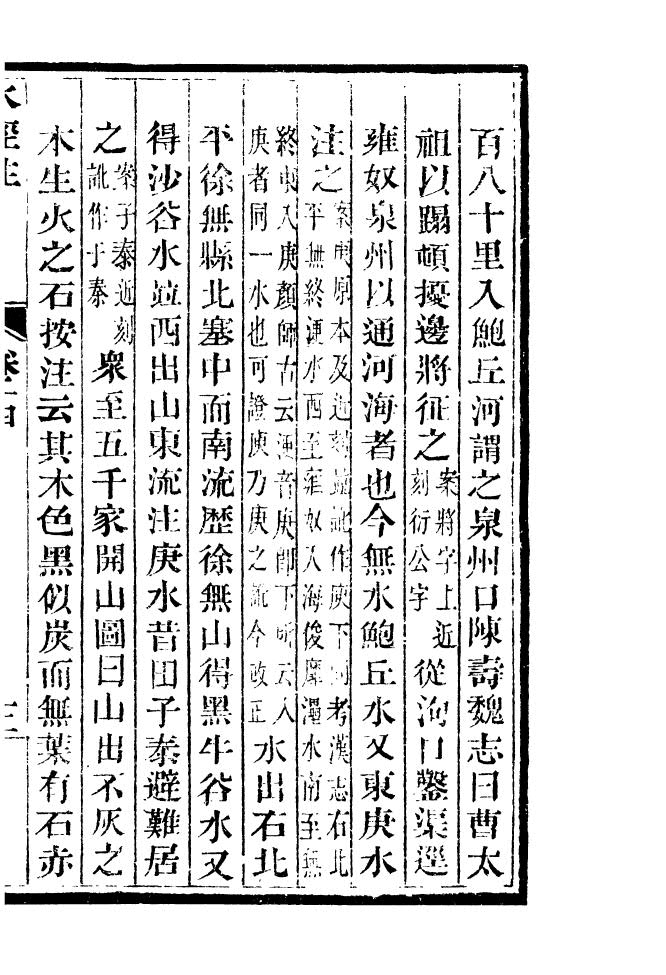 百八十里入鮑丘河謂之泉州口陳壽魏志曰曹太
祖以蹋頓擾邊將征之案將字上近刻衍公字從泃口鑿渠逕
雍奴泉州以通河海者也今無水鮑丘水又東庚水
注之案庚原本及近刻並訛作庾下同考漢志右北平無終浭水西至雍奴入海俊靡灅水南至無
終東入庚顏師古云浭音庚卽下所云入庚者同一水也可證庾乃庚之訛今改正水出右北
平徐無縣北塞中而南流歷徐無山得黑牛谷水又
得沙谷水竝西出山東流注庚水昔田子泰避難居
之案子泰近刻訛作于泰衆至五千家開山圖曰山出不灰之
木生火之石按注云其木色黑似炭而無葉有石赤
水經注
卷十四
十三